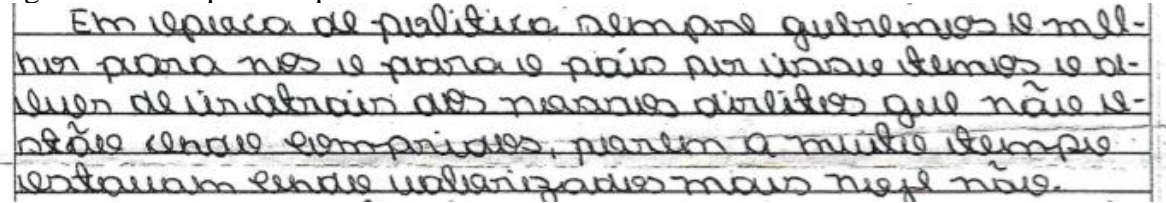 Em epoca de politica sempre queremos o mel-
hor para nos e para o páis por issso temos o d-
ever de ir atrais dos nossos direitos que não e-
stão cendo compridos, porem a muito tempo
estavam cendo valiarizados mais hoje não.